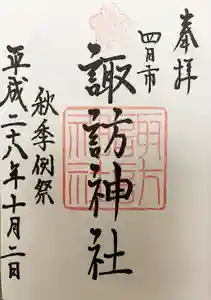 奉拝
四日市
諏訪神社
秋季例祭
平成二十八年十月二日